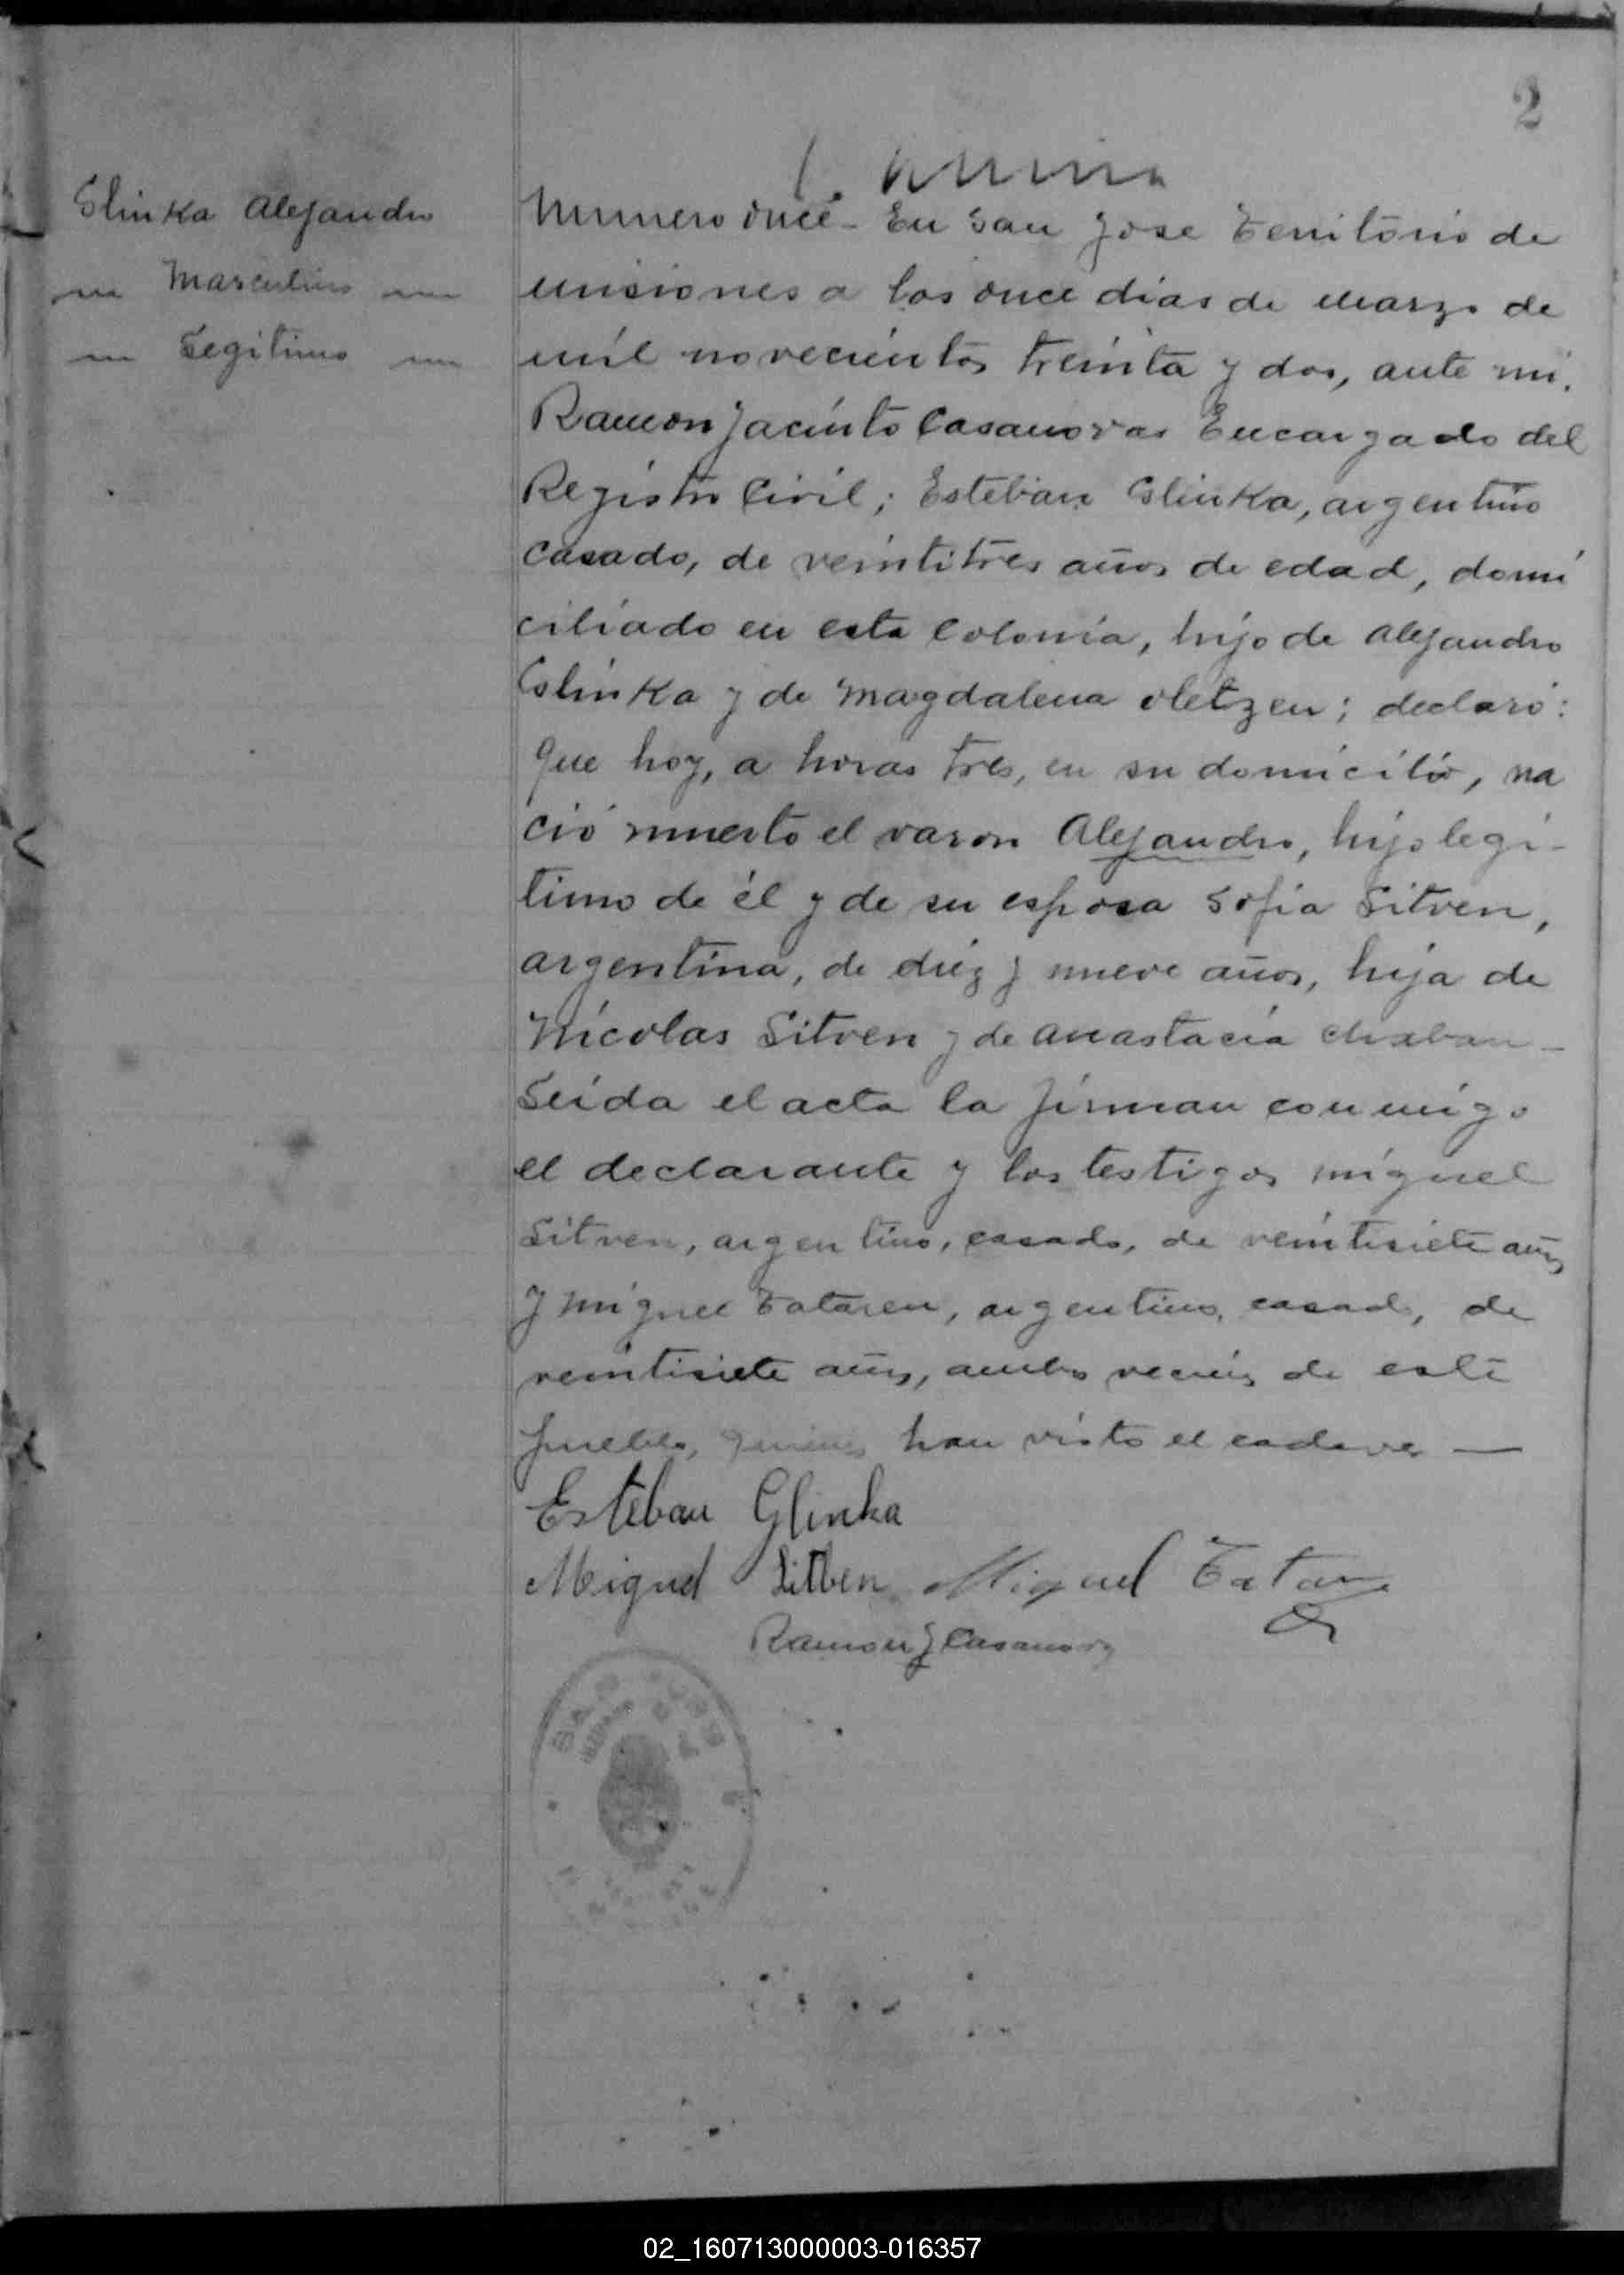 2
Glinka Alejandro
Masculino
Legitimo
Numero once - En San Jose Territorio de
Misiones a los once dias de Marzo de
mil novecientos treinta y dos, ante mi,
Ramon Jacinto Casanovas Encargado del
Registro Civil; Esteban Glinka, argentino
casado, de veintitres años de edad, domi
ciliado en esta Colonia, hijo de Alejandro
Glinka y de Magdalena Oletzen; declaró:
Que hoy, a horas tres, en su domicilio, na
ció muerto el varon Alejandro, hijo legi-
timo de él y de su esposa Sofia Sitven,
argentina, de diez y nueve años, hija de
Nicolas Sitven y de Anastacia
Leida el acta la firman conmigo
el declarante y los testigos Miguel
Sitven, argentino, casado, de veintisiete años
y Miguel Tataren, argentino, casado, de
veintisiete años, ambos vecinos de este
pueblo, quienes han visto el cadaver —
Esteban Glinka
Miguel Sitben Miguel
Ramon J Casanovas
SAN JOSE
02_160713000003-016357